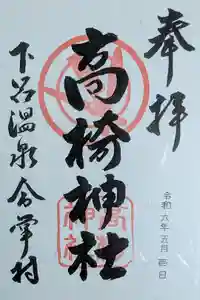 奉拝
高椅神社
令和六年五月吉日
下呂温泉合掌村